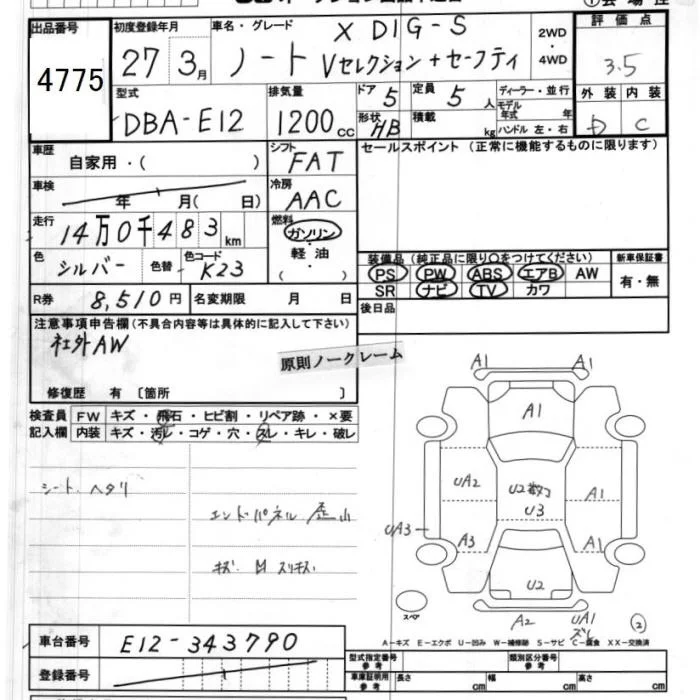 出品番号
4775
初度登録年月
27 3月
車名・グレード
X DIG-S
ノート Vセレクション+セーフティ
2WD
・
4WD
評価点
3.5
外装 内装
D C
型式
DBA-E12
排気量
1200 cc
ドア 5
定員 5 人
形状 HB
積載 kg
ディーラー・並行
モデル年式 年
ハンドル 左・右
車歴 自家用・( )
シフト
FAT
セールスポイント (正常に機能するものに限ります)
車検
年 月( 日)
冷房
AAC
走行
14万0千483 km
燃料
ガソリン
・
軽油
・
( )
色 シルバー 色替
色コード
K23
装備品 (純正品に限り○をつけてください)
新車保証書
PS PW ABS エアB AW
有・無
SR ナビ TV カワ
R券 8,510円 名変期限 月 日
後日品
注意事項申告欄 (不具合内容等は具体的に記入して下さい)
社外AW
原則ノークレーム
修復歴 有 〔箇所 〕
検査員 FW キズ・飛石・ヒビ割・リペア跡・×要
記入欄 内装 キズ・汚レ・コゲ・穴・スレ・キレ・破レ
シート ヘタリ
エンドパネル
キズ
A1 A1
A1
UA2
U2
U3
A1
UA3
A3
A1
U2
A2
UA1
スペア
A-キズ E-エクボ U-凹み W-補修跡 S-サビ C-腐食 XX-交換済
車台番号 E12-343790
登録番号
型式指定番号
参考
類別区分番号
参考
車庫証明用
参考
長さ cm 幅 cm 高さ cm